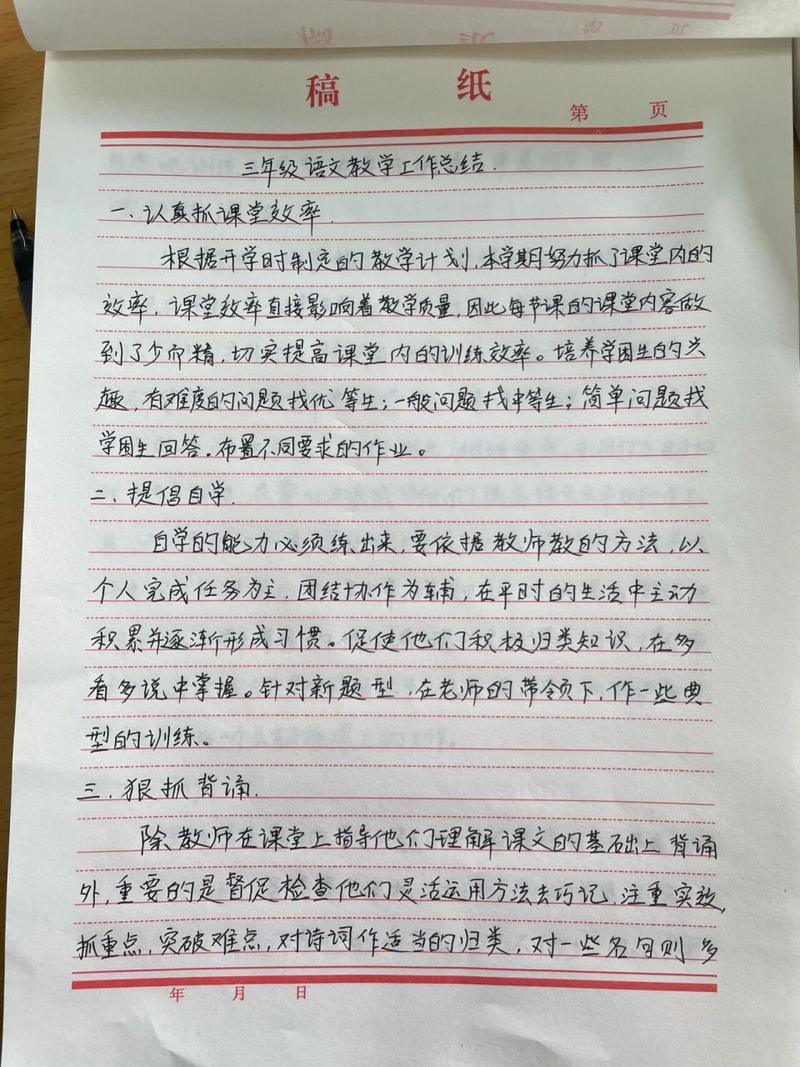 稿 纸
第 页
三年级语文教学工作总结.
一、认真抓课堂效率.
根据开学时制定的教学计划,本学期努力抓了课堂内的
效率,课堂效率直接影响着教学质量,因此每节课的课堂内容做
到了少而精,切实提高课堂内的训练效率。培养学困生的兴
趣,有难度的问题找优等生;一般问题找中等生;简单问题找
学困生回答.布置不同要求的作业。
二、提倡自学.
自学的能力必须练出来,要依据教师教的方法,以
个人完成任务为主,团结协作为辅,在平时的生活中主动
积累并逐渐形成习惯。促使他们积极归类知识,在多
看多说中掌握。针对新题型,在老师的带领下,作一些典
型的训练。
三、狠抓背诵.
除教师在课堂上指导他们理解课文的基础上背诵
外,重要的是督促检查他们灵活运用方法去巧记,注重实效,
抓重点,突破难点,对诗词作适当的归类,对一些名句则多
年 月 日